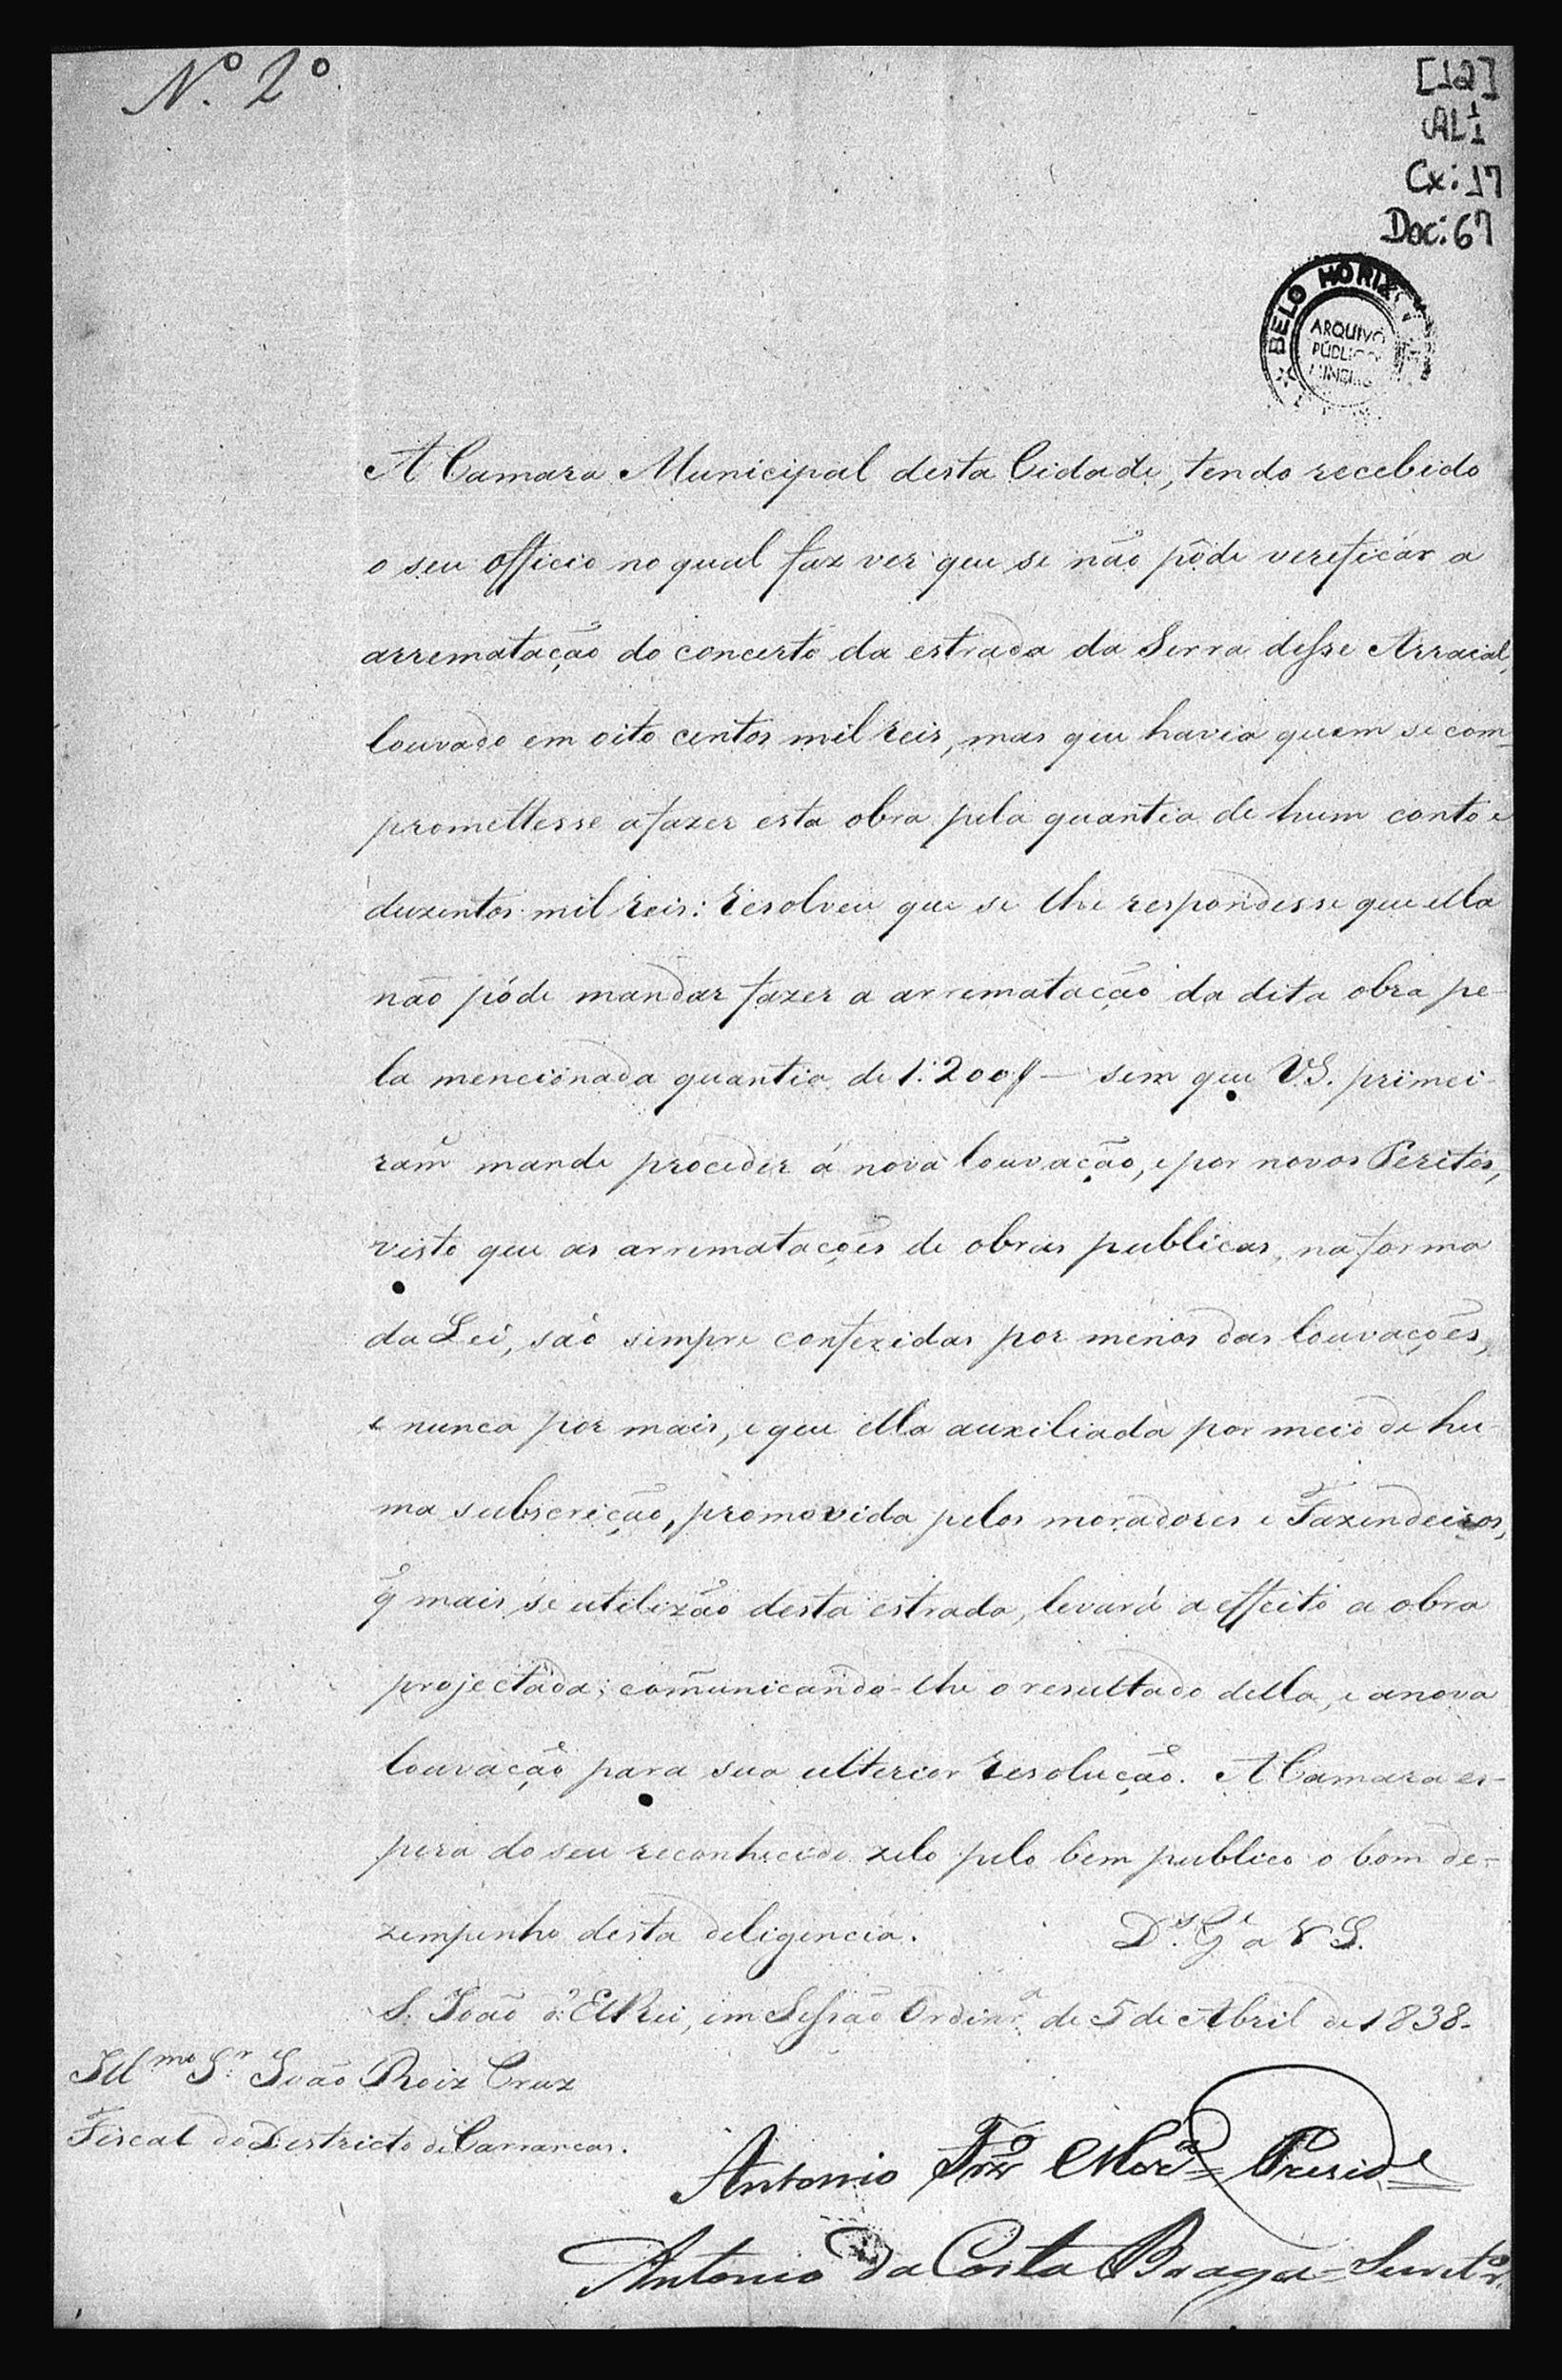 Nº. 2º.
[12]
AL 1/1
Cx: 17
Doc: 67
BELO HORIZ
ARQUIVO
PÚBLICO
MINEI
A Camara Municipal desta Cidade, tendo recebido
o seu officio no qual faz ver que se não pôde verificar a
arrematação do concerto da estrada da Serra desse Arraial,
louvado em oito centos mil reis, mas que havia quem se com-
promettesse a fazer esta obra pela quantia de hum conto e
duzentos mil reis: resolveu que se lhe respondesse que ella
não póde mandar fazer a arrematação da dita obra pe-
la mencionada quantia de 1:200$ — sem que V.S. primei-
ram^e mande proceder á nova louvação, e por novos Peritos,
visto que as arrematações de obras publicas, na forma
da Lei, são sempre conferidas por menos das louvações,
e nunca por mais, e que ella auxiliada por meio de hu-
ma subscrição, promovida pelos moradores e Fazendeiros,
q̃ mais se utilizão desta estrada, levará a effeito a obra
projectada; comunicando-lhe o resultado della, e a nova
louvação para sua ulterior resolução. A Camara es-
pera do seu reconhecido zelo pelo bem publico o bom de-
zempenho desta deligencia. D.^s G.^e a V S.
S. João d'ElRei, em Sessão Ordinr.^a de 5 de Abril de 1838.
Ill^mo S.^r João Roiz Cruz
Fiscal do Destricto de Carrancas.
Antonio Frz' Mor.^a Presid^e
Antonio da Costa Braga Secret^r.